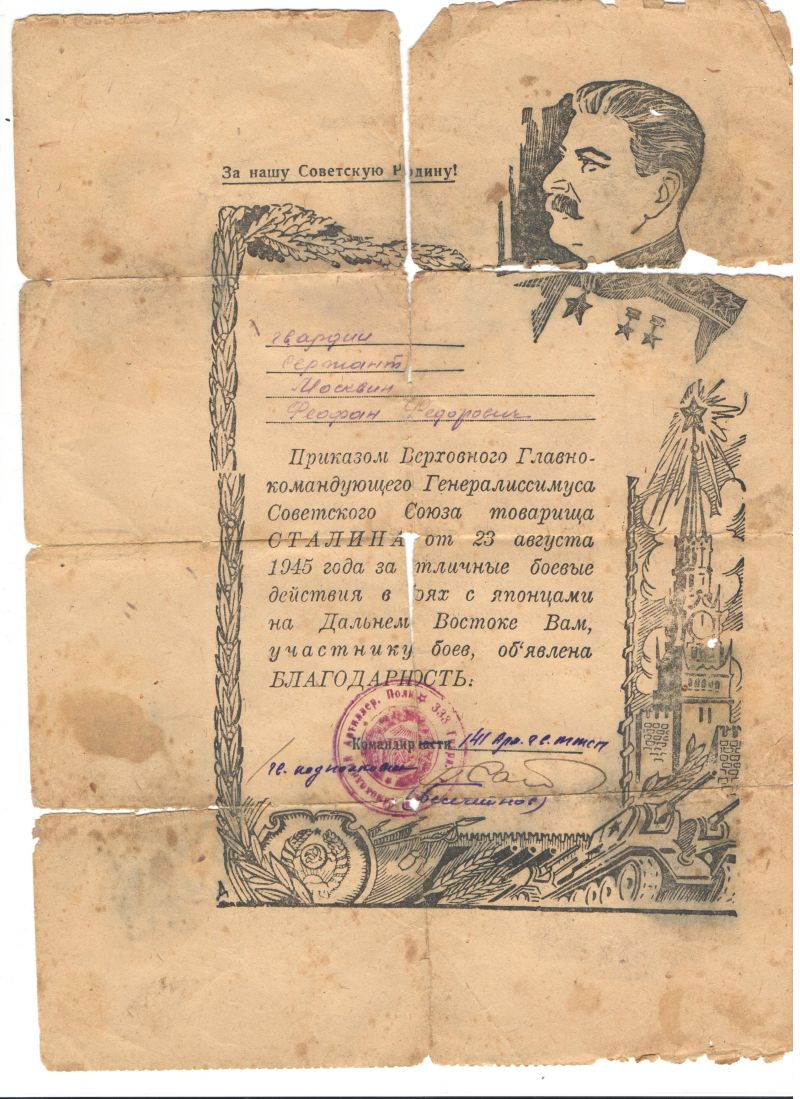 За нашу Советскую Родину!
гвардии
Сержант
Москвин
Феофан Федорович
Приказом Верховного Главно-
командующего Генералиссимуса
Советского Союза товарища
СТАЛИНА от 23 августа
1945 года за отличные боевые
действия в боях с японцами
на Дальнем Востоке Вам,
участнику боев, об'явлена
БЛАГОДАРНОСТЬ:
Артиллер. Полк 333
Командир части 141
гв. подполковник